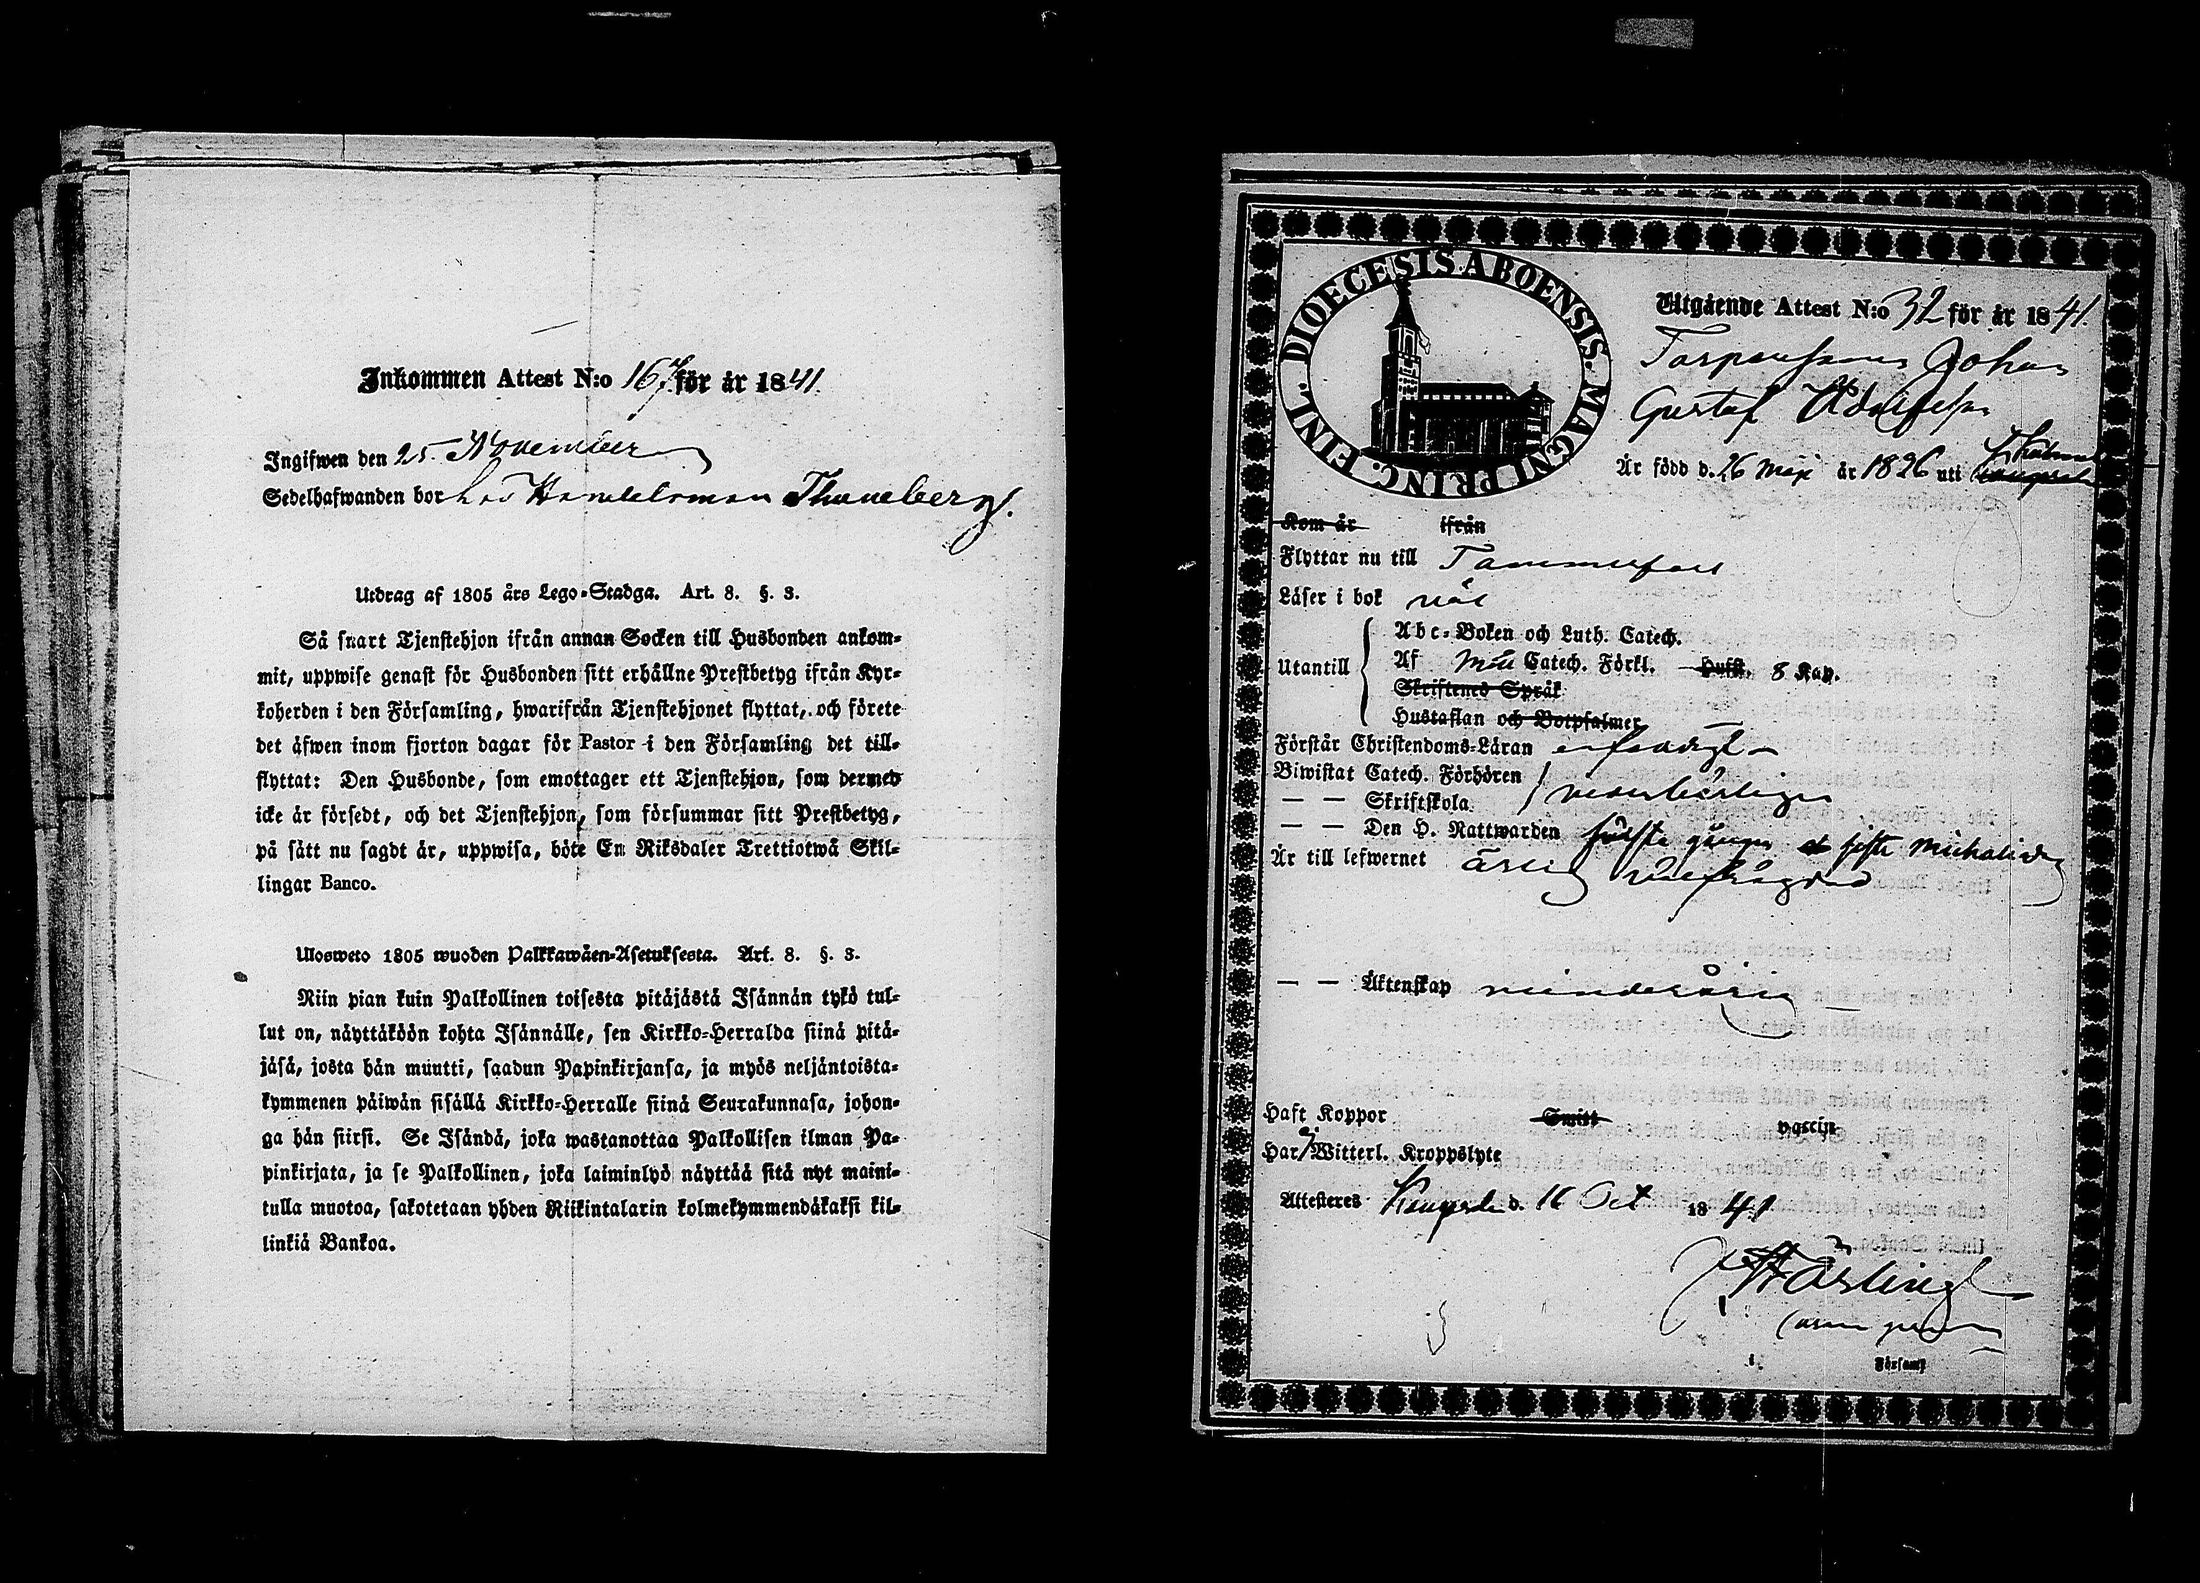 Inkommen Attest N:o 167 för år 1841.
Ingifwen den 25 November
Sedelhafwanden bor hos Handelsman Thuneberg.
Utdrag af 1805 års Lego-Stadga. Art. 8. §. 3.
Så snart Tjenstehjon ifrån annan Socken till Husbonden ankom-
mit, uppwise genast för Husbonden sitt erhållne Prestbetyg ifrån Kyr-
koherden i den Församling, hwarifrån Tjenstehjonet flyttat, och förete
det äfwen inom fjorton dagar för Pastor i den Församling det till-
flyttat: Den Husbonde, som emottager ett Tjenstehjon, som dermed
icke är försedt, och det Tjenstehjon, som försummar sitt Prestbetyg,
på sätt nu sagdt är, uppwisa, böte En Riksdaler Trettiotwå Skil-
lingar Banco.
Ulosweto 1805 wuoden Palkkawäen-Asetuksesta. Art. 8. §. 3.
Niin pian kuin Palkollinen toisesta pitäjästä Isännän tykö tul-
lut on, näyttäköön kohta Isännälle, sen Kirkko-Herralda siinä pitä-
jäsä, josta hän muutti, saadun Papinkirjansa, ja myös neljäntoista-
kymmenen päiwän sisällä Kirkko-Herralle siinä Seurakunnasa, johon-
ga hän siirsi. Se Isändä, joka wastanottaa Palkollisen ilman Pa-
pinkirjata, ja se Palkollinen, joka laiminlyö näyttää sitä nyt maini-
tulla muotoa, sakotetaan yhden Riikintalarin kolmekymmendäkaksi kil-
linkiä Bankoa.
DIOECESIS ABOENSIS. MAGNI PRINC. FINL.
Utgående Attest N:o 32 för år 1841.
Johan
Gustaf Adolfsson
Är född d. 26 Maji år 1826 uti
Kom år ifrån
Flyttar nu till Tammerfors
Läser i bok väl
Utantill
Abc-Boken och Luth. Catech.
Af Catech. Förkl. Hufst. 8 Kap.
Skriftenes Språk
Hustaflan och Botpsalmer
Förstår Christendoms-Läran enfaldigt
Biwistat Catech. Förhören
— — Skriftskola
— — Den H. Nattwarden första gången siste Michaelidag
Är till lefwernet ärlig välfrägdad
— — Äktenskap minderårig
Haft Koppor Smitt vaccin
Har ej Witterl. Kroppslyte
Attesteres Kangasala d. 16 Oct 1841
Församl